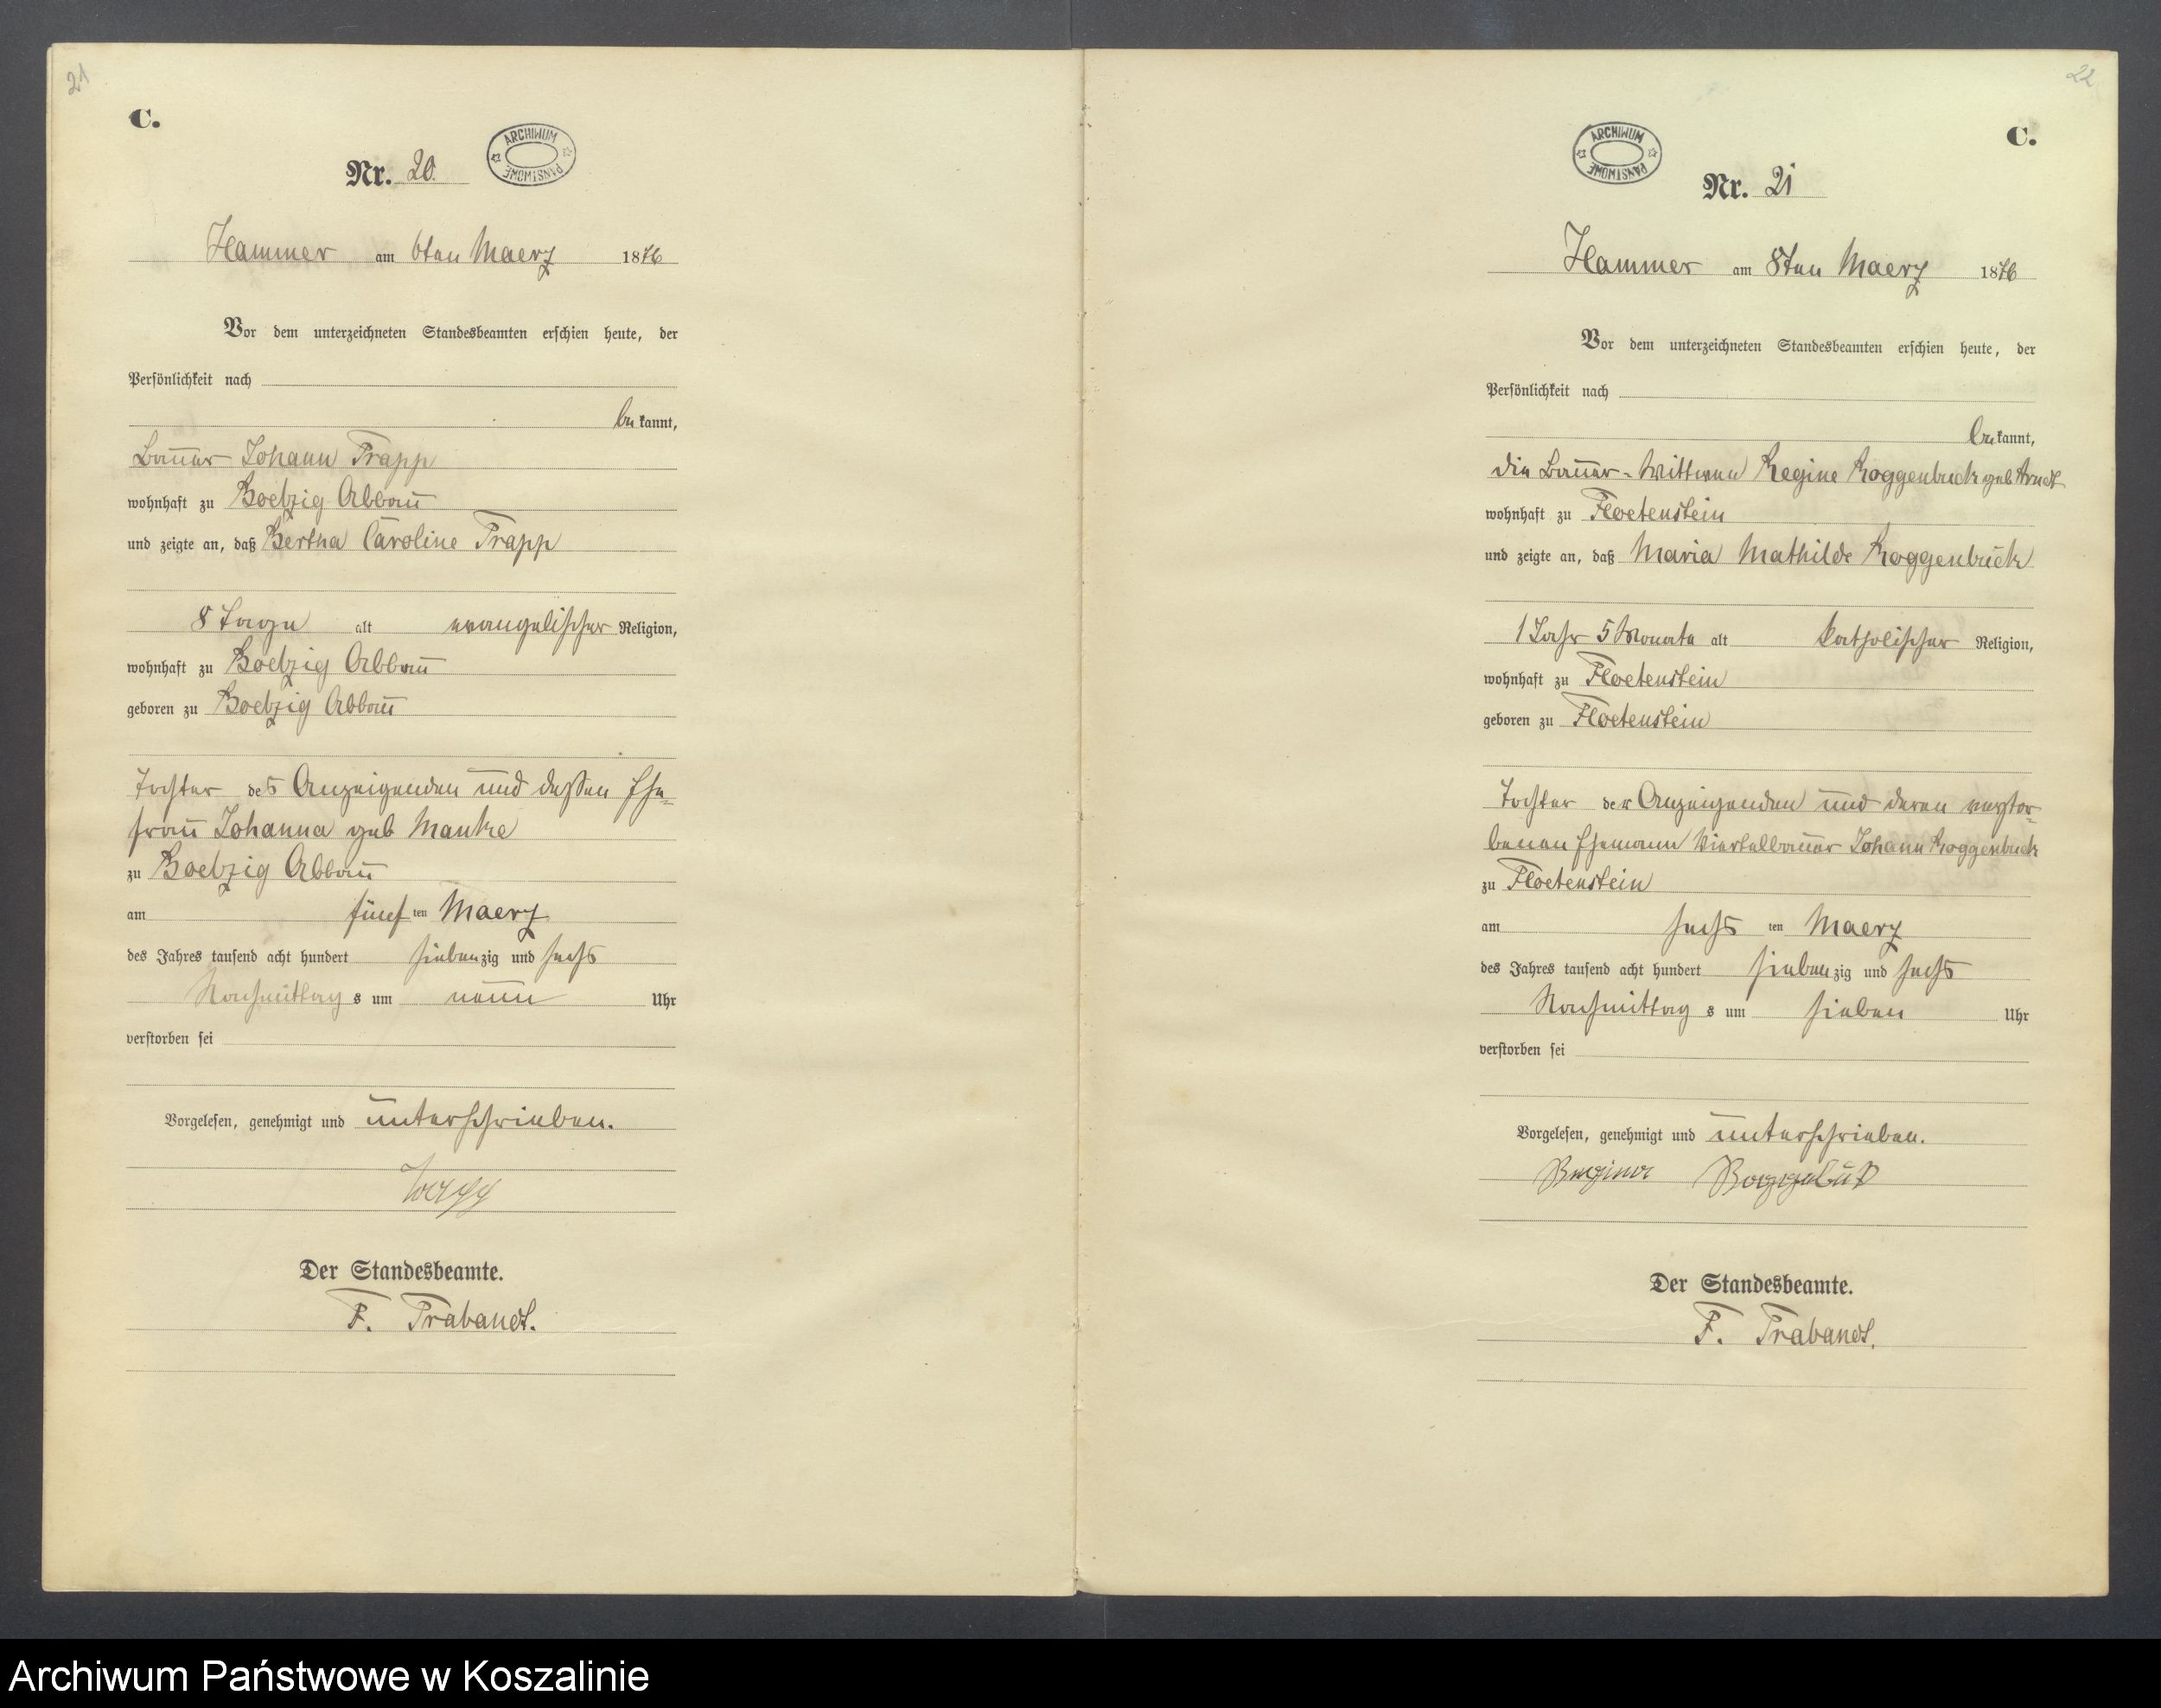 21
C.
ARCHIWUM PAŃSTWOWE
Nr. 20.
Hammer am 6ten Maerz 1876
Vor dem unterzeichneten Standesbeamten erschien heute, der
Persönlichkeit nach
be kannt,
Bauer Johann Trapp
wohnhaft zu Boelzig Abbau
und zeigte an, daß Bertha Caroline Trapp
8 Tage alt evangelischer Religion,
wohnhaft zu Boelzig Abbau
geboren zu Boelzig Abbau
Tochter des Anzeigenden und dessen Ehe-
frau Johanna geb Manke
zu Boelzig Abbau
am fünf ten Maerz
des Jahres tausend acht hundert siebenzig und sechs
Nachmittag s um neun Uhr
verstorben sei
Vorgelesen, genehmigt und unterschrieben.
Trapp
Der Standesbeamte.
F. Trabandt.
22
C.
ARCHIWUM PAŃSTWOWE
Nr. 21
Hammer am 8ten Maerz 1876
Vor dem unterzeichneten Standesbeamten erschien heute, der
Persönlichkeit nach
be kannt,
die Bauer-Wittwe Regine Roggenbuck geb Arndt
wohnhaft zu Floetenstein
und zeigte an, daß Maria Mathilde Roggenbuck
1 Jahr 5 Monate alt katholischer Religion,
wohnhaft zu Floetenstein
geboren zu Floetenstein
Tochter der Anzeigenden und deren verstor-
benen Ehemann Viertelbauer Johann Roggenbuck
zu Floetenstein
am sechs ten Maerz
des Jahres tausend acht hundert siebenzig und sechs
Nachmittag s um sieben Uhr
verstorben sei
Vorgelesen, genehmigt und unterschrieben.
Regina Roggebuk
Der Standesbeamte.
F. Trabandt.
Archiwum Państwowe w Koszalinie